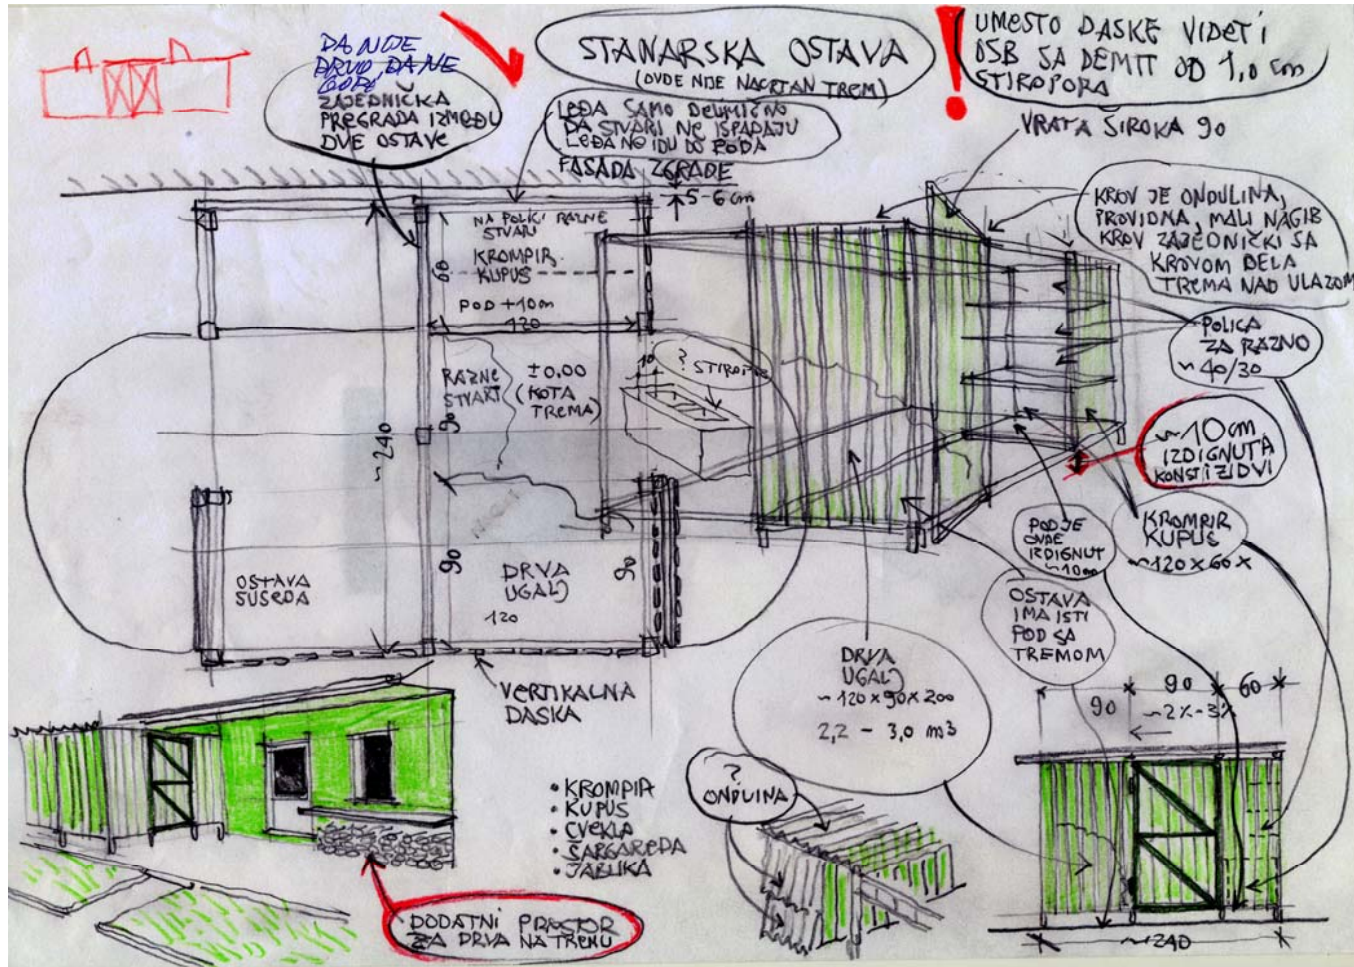 DA NIJE
DRVO, DA NE
GORI
ZAJEDNIČKA
PREGRADA IZMEĐU
DVE OSTAVE
STANARSKA OSTAVA
(OVDE NIJE NACRTAN TREM)
UMESTO DASKE VIDETI
OSB SA DEMIT OD 1,0 cm
STIROPORA
LEĐA SAMO DELIMIČNO
DA STVARI NE ISPADAJU
LEĐA NE IDU DO PODA
FASADA ZGRADE
5-6 cm
VRATA ŠIROKA 90
KROV JE ONDULINA,
PROVIDNA, MALI NAGIB
KROV ZAJEDNIČKI SA
KROVOM DELA
TREMA NAD ULAZOM
NA POLICI RAZNE
STVARI
KROMPIR
KUPUS
60
POD +10cm
120
POLICA
ZA RAZNO
~ 40/30
RAZNE
STVARI
±0,00
(KOTA
TREMA)
90
~ 240
10
? STIROPOR
~10cm
IZDIGNUTA
KONST I ZIDVI
POD JE
OVDE
IZDIGNUT
~10cm
KROMPIR
KUPUS
~120X60X
OSTAVA
SUSEDA
90
DRVA
UGALJ
120
90
OSTAVA
IMA ISTI
POD SA
TREMOM
DRVA
UGALJ
~120x90x200
2,2 - 3,0 m3
VERTIKALNA
DASKA
90
90
60
~2%-3%
~240
• KROMPIR
• KUPUS
• CVEKLA
• ŠARGAREPA
• JABUKA
?
ONDULINA
DODATNI PROSTOR
ZA DRVA NA TREMU